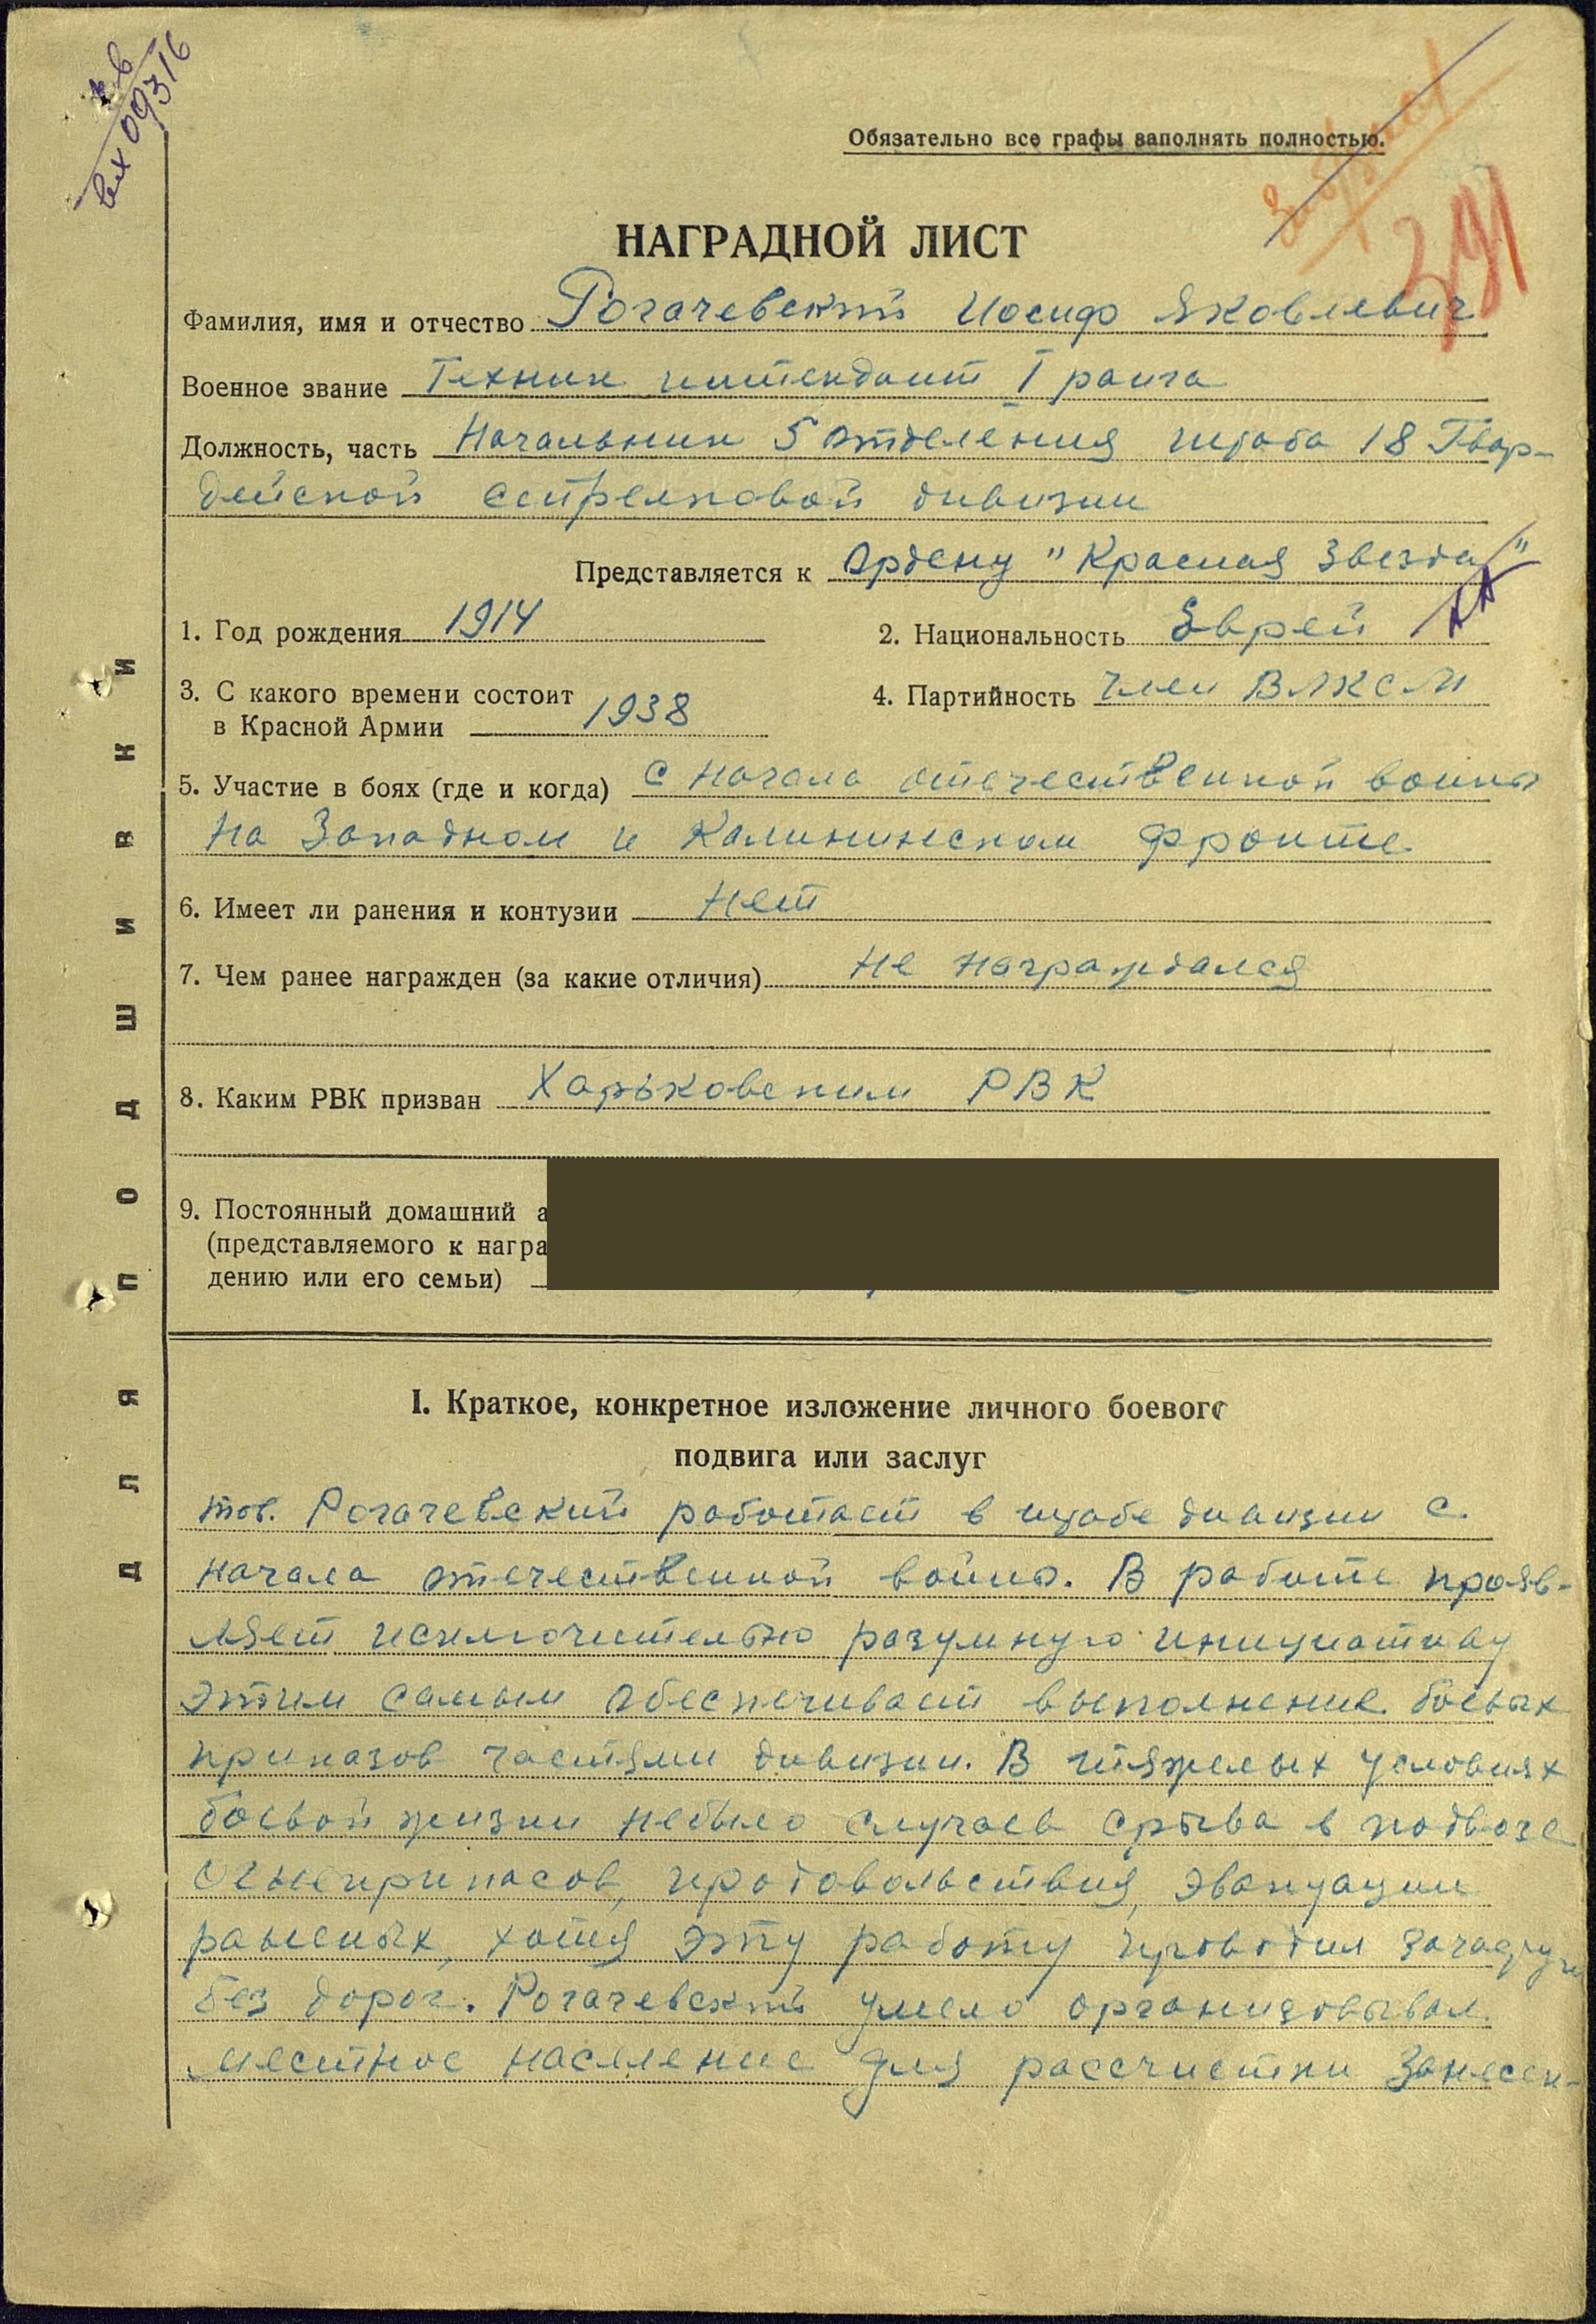 вх 09316
Обязательно все графы заполнять полностью.
291
НАГРАДНОЙ ЛИСТ
Фамилия, имя и отчество Рогачевский Иосиф Яковлевич
Военное звание Техник интендант I ранга
Должность, часть Начальник 5 отделения штаба 18 Гвар-
дейской стрелковой дивизии
Представляется к Ордену "Красная Звезда"
1. Год рождения 1914 2. Национальность Еврей
3. С какого времени состоит в Красной Армии 1938 4. Партийность член ВЛКСМ
5. Участие в боях (где и когда) С начала отечественной войны
на Западном и Калининском фронте
6. Имеет ли ранения и контузии Нет
7. Чем ранее награжден (за какие отличия) Не награждался
8. Каким РВК призван Харьковским РВК
9. Постоянный домашний а
(представляемого к награ
дению или его семьи)
I. Краткое, конкретное изложение личного боевого
подвига или заслуг
тов. Рогачевский работает в штабе дивизии с
начала отечественной войны. В работе прояв-
ляет исключительно разумную инициативу
этим самым обеспечивает выполнение боевых
приказов частями дивизии. В тяжелых условиях
боевой жизни небыло случаев срыва в подвозе
огнеприпасов, продовольствия, эвакуации
раненых, хотя эту работу проводил зачастую
без дорог. Рогачевский умело организовывал
местное население для рассчистки занесен-
ДЛЯ ПОДШИВКИ